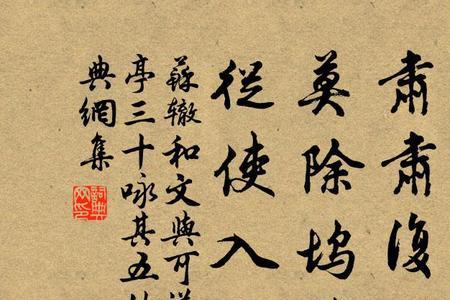 肅肅復
莫除塢
從使入
蘇轍和文與可洋
亭三十咏其五
典網集